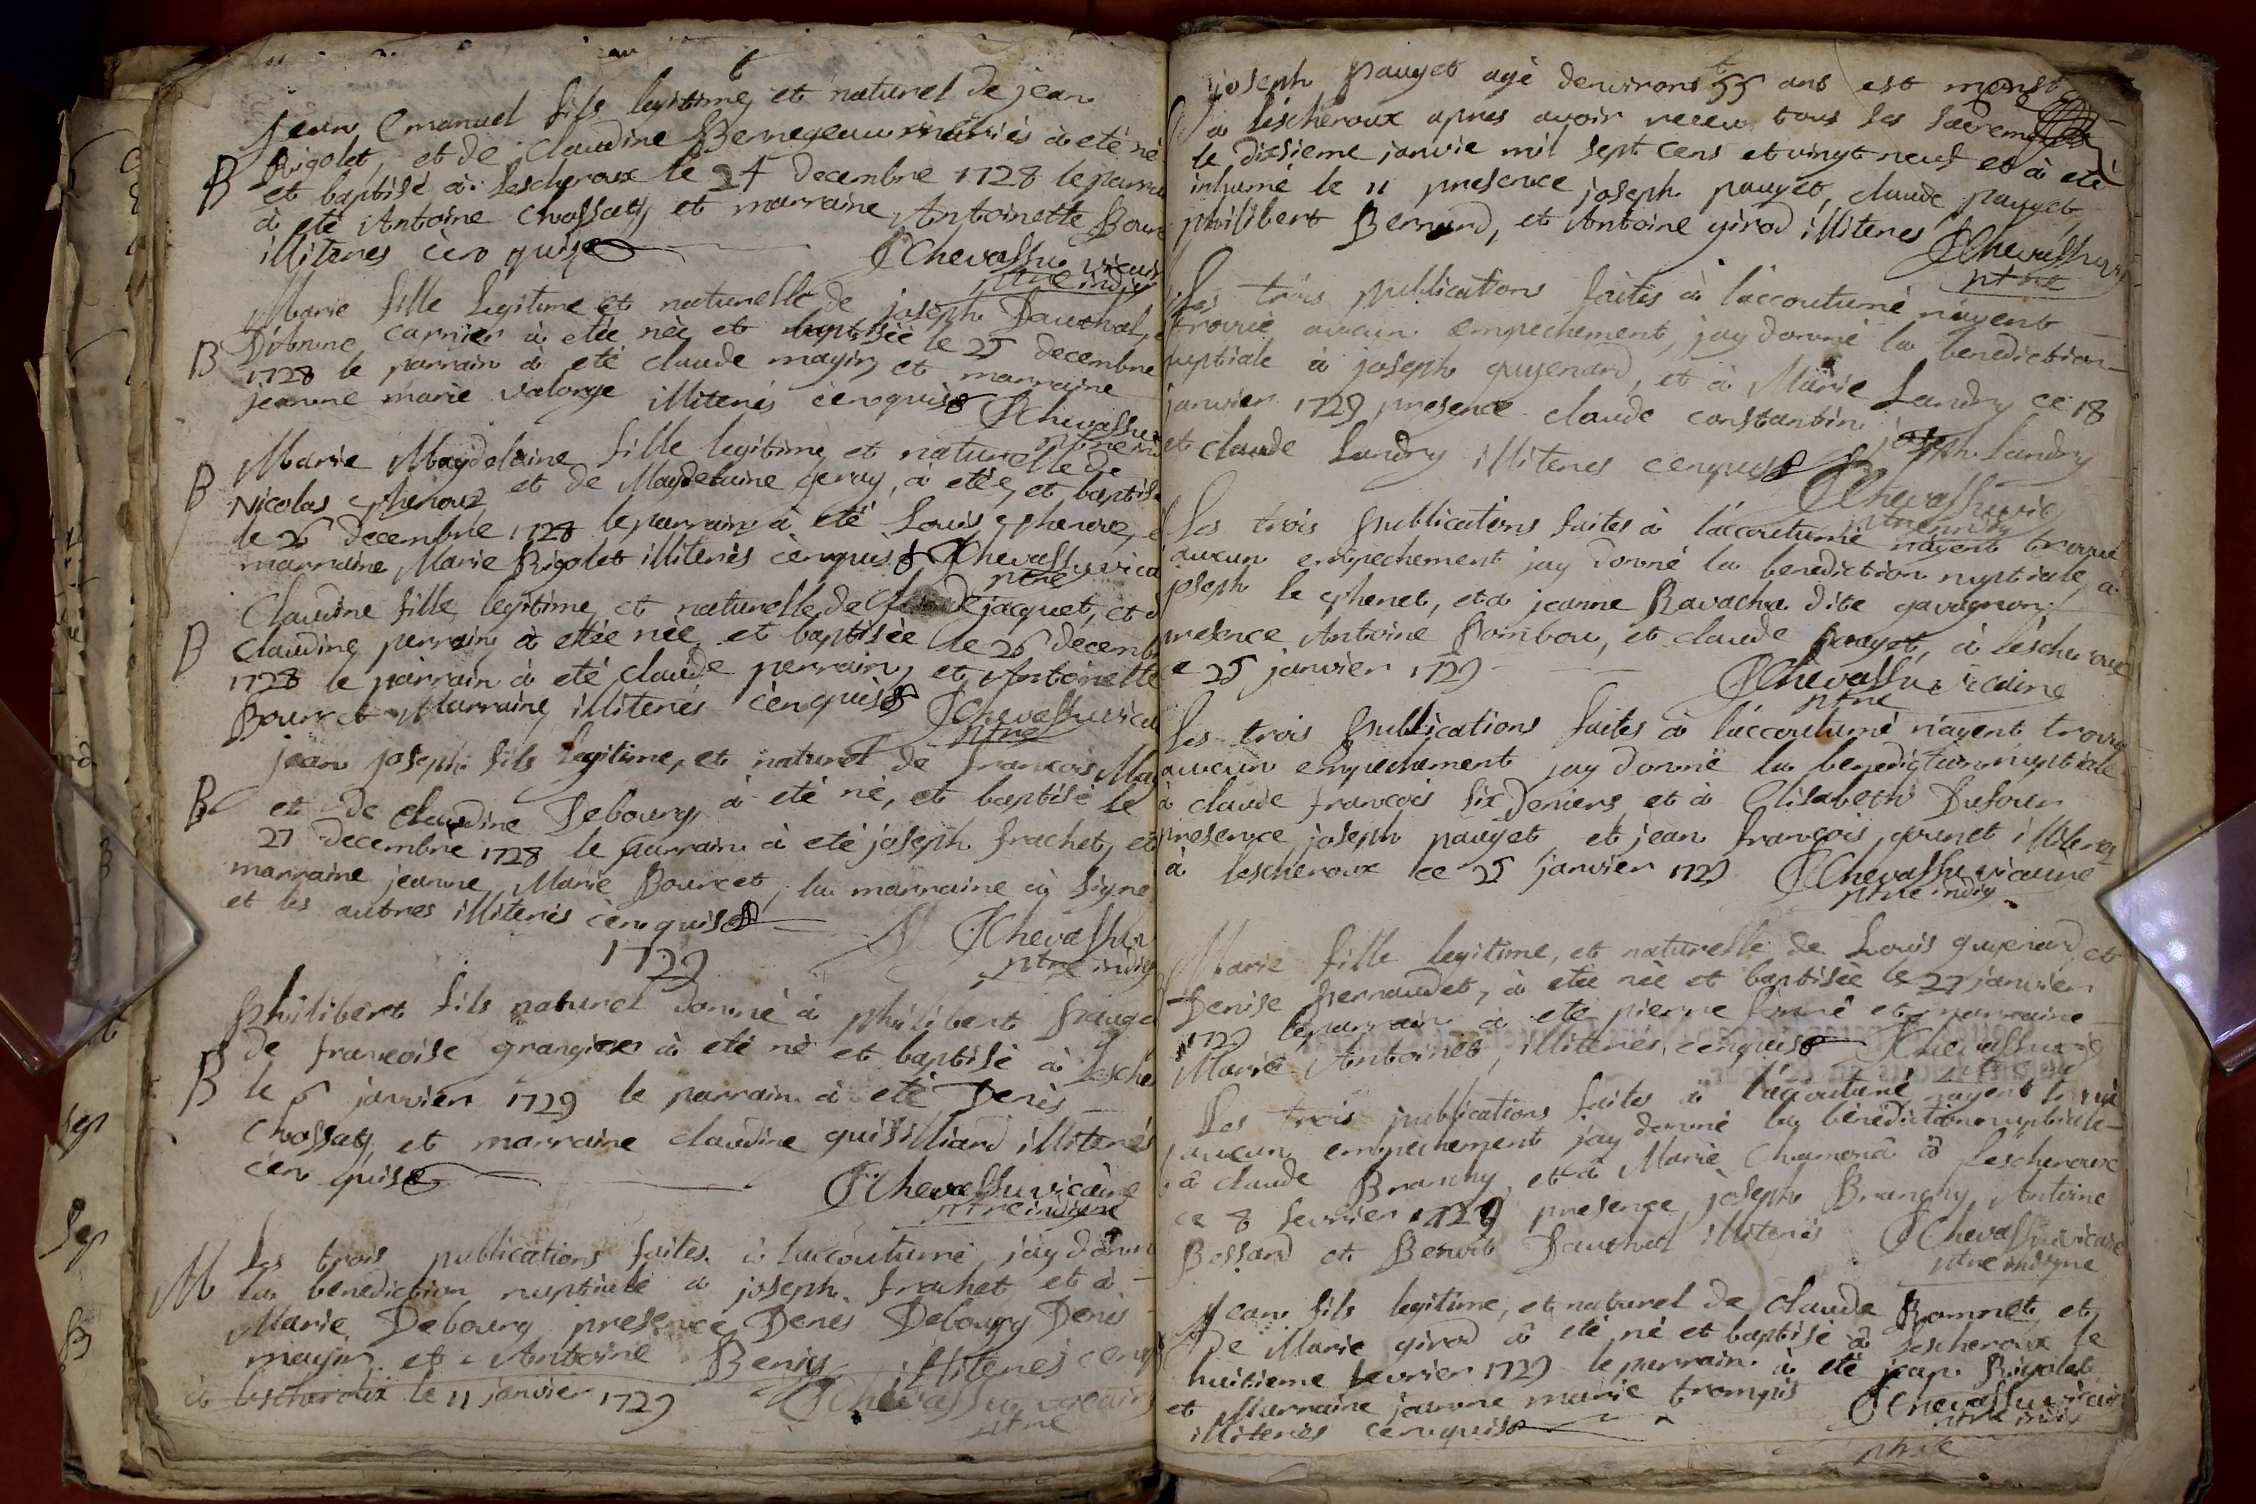 Jean Emanuel fils legitime et naturel de jean
Rigolet, et de Claudine Berregeau mariés à eté né
B
et baptisé à Lescheroux le 24 decembre 1728 le parrain
à eté Antoine Chossat, et marraine Antoinette Bour
illiterés cenquis
JChevassu vicair
ptre indig
Marie fille legitime et naturelle de joseph Dauthel,
D'Anne carrier à etée née et baptisée le 25 decembre
B
1728 le parrain à eté claude mayin et marraine
jeanne marie valorge illiterés cenquis
JChevassu
Marie Magdelaine fille legitime et naturelle de
B
Nicolas et de Magdelaine geray, à etée, et baptis
le 26 decembre 1728 le parrain à eté Louis
marraine Marie Rigolet illiterés cenquis JChevassu vica
ptre
Claudine fille legitime et naturelle de jacquet, et
B
Claudine perrain à etée née et baptisée le 26 decemb
1728 le parrain à eté claude perrain, et Antoinette
Bourcet Marraine illiterés cenquis JChevassu vica
ptre
jean joseph fils legitime, et naturel de francois May
B
et de Claudine Debourg à eté né, et baptisé le
27 decembre 1728 le parrain à eté joseph frachet, et
marraine jeanne Marie Bourcet, la marraine à signé
et les autres illiterés cenquis
JChevassu
ptre indig
1729
Philibert fils naturel donné à philibert
de francoise grangier à eté né et baptisé à Lesche
B
le 6 janvier 1729 le parrain à eté Denis
Chossat, et marraine claudine quisilliard illiterés
cen quis
JChevassu vicaire
ptre indigne
M
Les trois publications faites à laccoutumé jay donn
la benediction nuptiale à joseph frachet et à
Marie Debourg presence Denis Debourg Denis
mayin et Antoine Beny illiterés cenq
à lescheroux le 11 janvier 1729 JChevassu vicair
ptre
joseph pauget agé denvirons 55 ans est mort
à lescheroux apres avoir receu tous les sacrem
le dixsieme janvie mil sept cens et vingt neuf et à eté
inhumé le 11 presence joseph pauget, claude pauget
philibert Bernard, et Antoine girod illiterés
JChevassu
ptre
Les trois publications faites à laccoutumé nayent
trouvé aucun empechement, jay donné la benediction
nuptiale à joseph guyenard, et à Marie Landry ce 18
janvier 1729 presence claude constantin joseph Landry
et claude Landry illiterés cenquis
JChevassu vic
Les trois publications faites à laccoutumé nayent trouvé
aucun empechement jay donné la benediction nuptiale à
joseph le et à jeanne Ravachu dite gavagnon
presence Antoine pombou, et claude pauget, à lescheroux
ce 25 janvier 1729
JChevassu vicaire
ptre
Les trois publications faites à laccoutumé nayent trouvé
aucun empechement jay donné la benediction nuptiale
à claude francois sixdeniers et à Elisabeth Dufour
presence joseph pauget et jean francois illiterés
à lescheroux ce 25 janvier 1729 JChevassu vicaire
ptre indig
Marie fille legitime, et naturelle de Louis guyenard, et
Denise pernaudet, à etée née et baptisée le 27 janvier
1729 le parrain à eté pierre et marraine
Marie Antoinet, illiterés cenquis JChevassu
Les trois publications faites à laccoutumé nayent trouvé
aucun empechement jay donné la benediction nuptiale
à claude Branchy, et à Marie Chamonâ à Lescheroux
ce 8 fevrier 1729 presence joseph Branchy, Antoine
Bossard et Benoit Dauthel illiterés JChevassu vicaire
ptre indigne
Jean fils legitime, et naturel de claude Bonnet et
de Marie girod à eté né et baptisé à Lescheroux le
huitieme fevrier 1729 le parrain à eté jean Rigolet
et Marraine jeanne marie trompis JChevassu vicair
illiterés cenquis
ptre indi